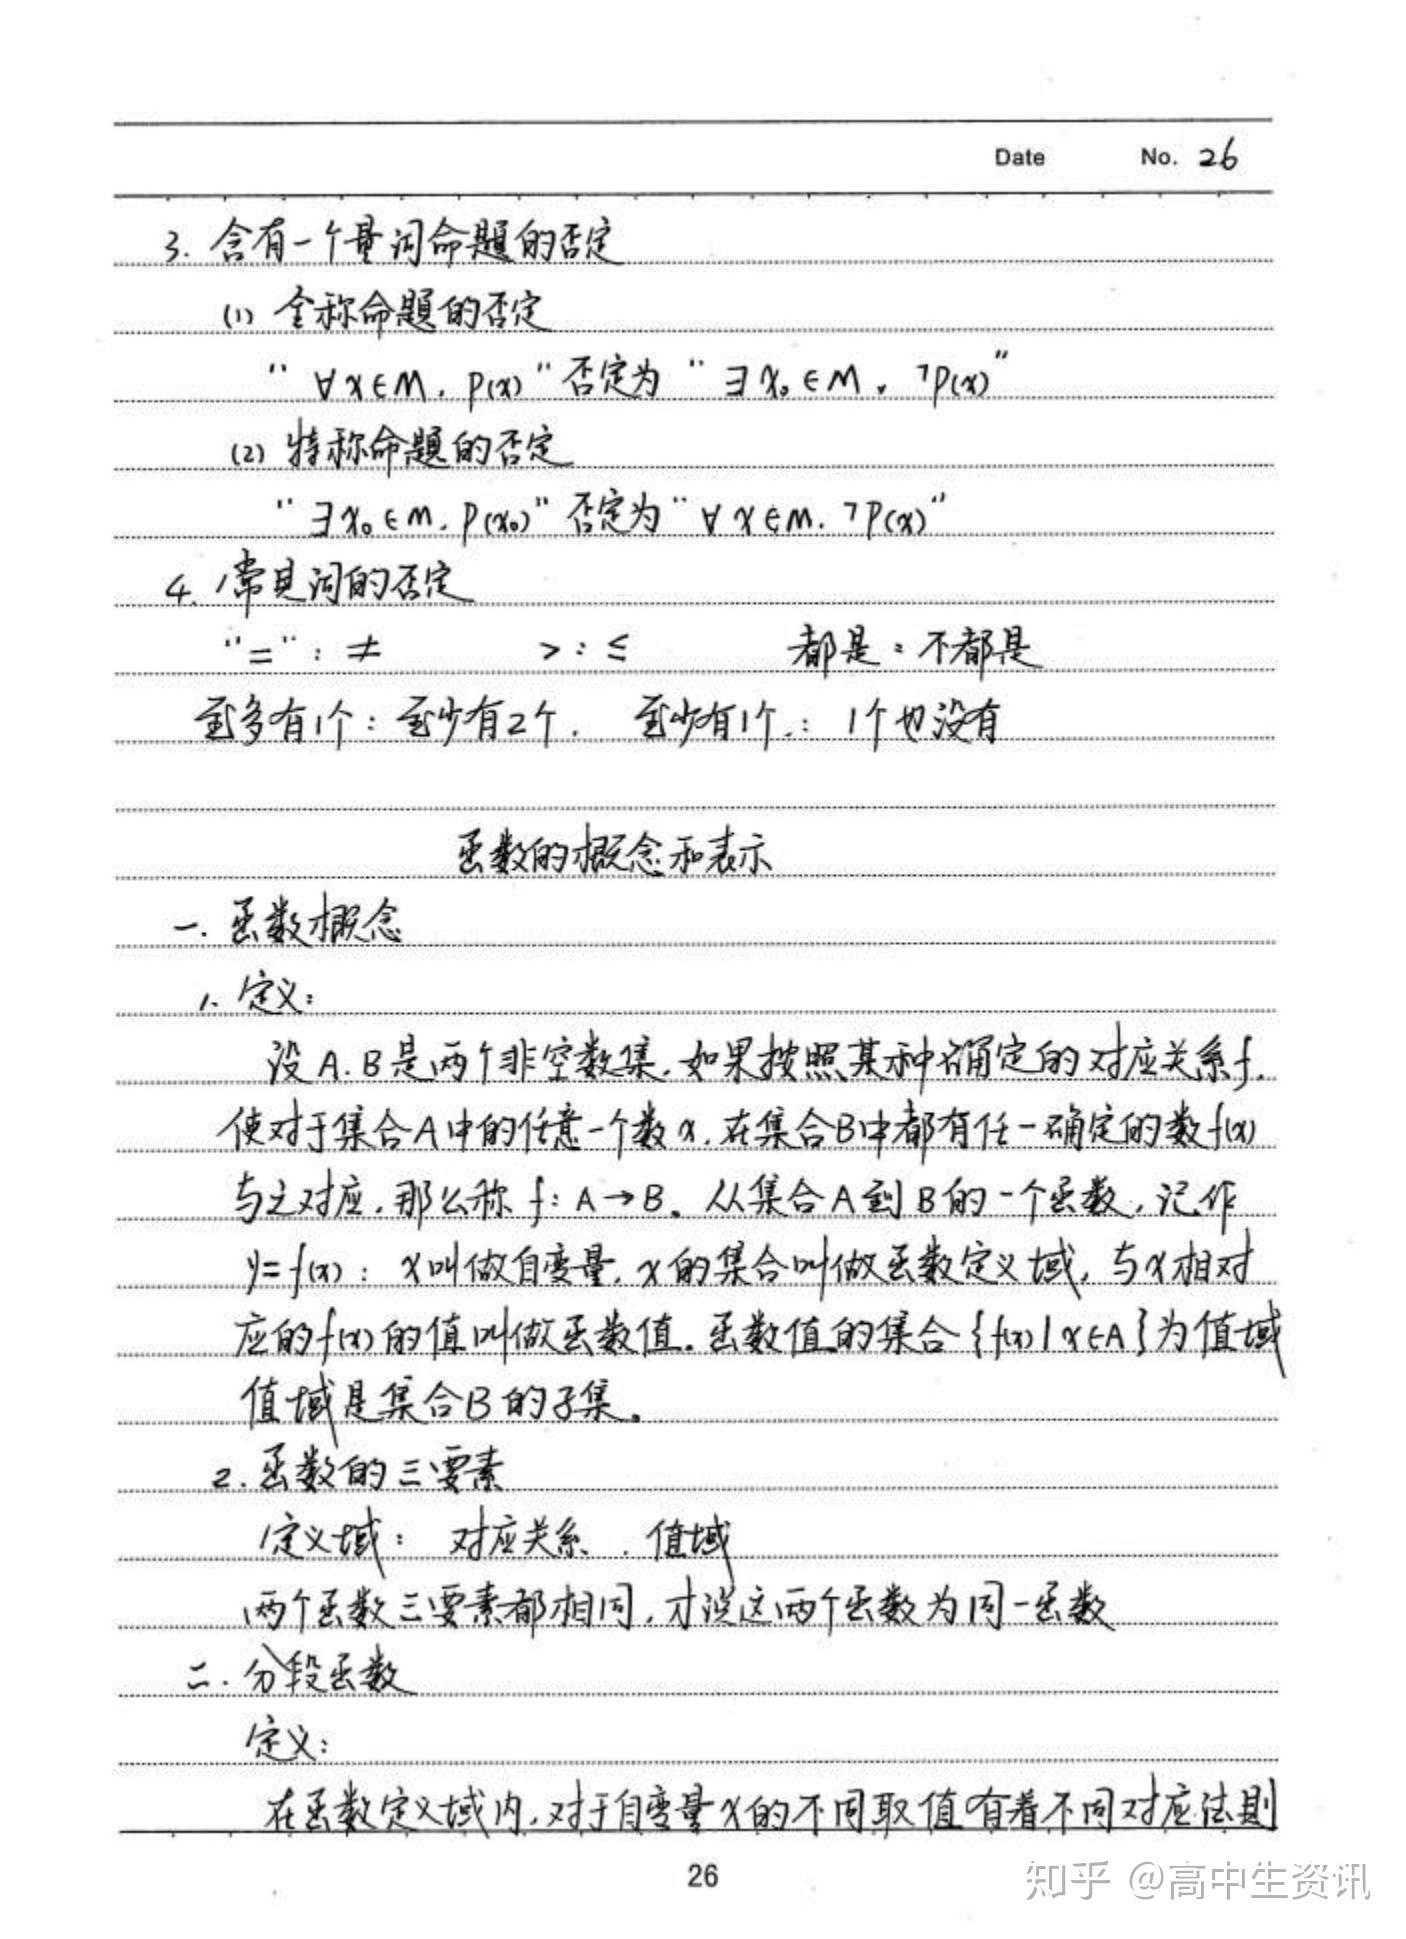 Date No. 26
3. 含有一个量词命题的否定
(1) 全称命题的否定
“ ∀x∈M, P(x) ” 否定为 “ ∃x₀∈M, ¬P(x) ”
(2) 特称命题的否定
“ ∃x₀∈M, P(x₀) ” 否定为 “ ∀x∈M, ¬P(x) ”
4. 常见词的否定
“=”: ≠ >: ≤ 都是: 不都是
至多有1个: 至少有2个. 至少有1个.: 1个也没有
函数的概念和表示
一. 函数概念
1. 定义:
设A.B是两个非空数集, 如果按照某种确定的对应关系f,
使对于集合A中的任意一个数x, 在集合B中都有任一确定的数f(x)
与之对应, 那么称 f: A→B。从集合A到B的一个函数, 记作
y=f(x): x叫做自变量, x的集合叫做函数定义域, 与x相对
应的f(x)的值叫做函数值。函数值的集合{f(x)|x∈A}为值域
值域是集合B的子集。
2. 函数的三要素
定义域: 对应关系 . 值域
两个函数三要素都相同, 才说这两个函数为同一函数
二. 分段函数
定义:
在函数定义域内, 对于自变量x的不同取值有着不同对应法则
26
知乎 @高中生资讯